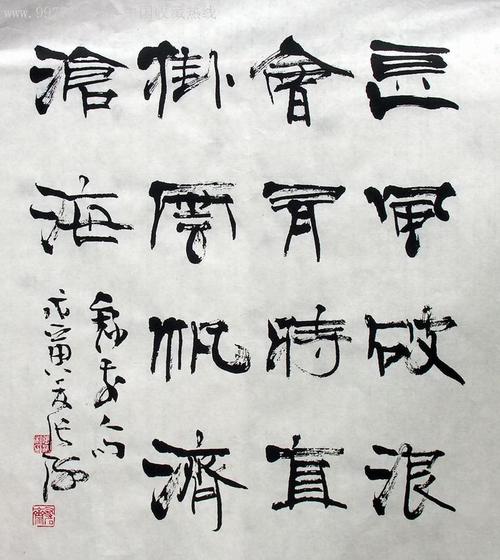 長風破浪
會有時直
掛雲帆濟
滄海
戊寅
www.997
国收藏热线